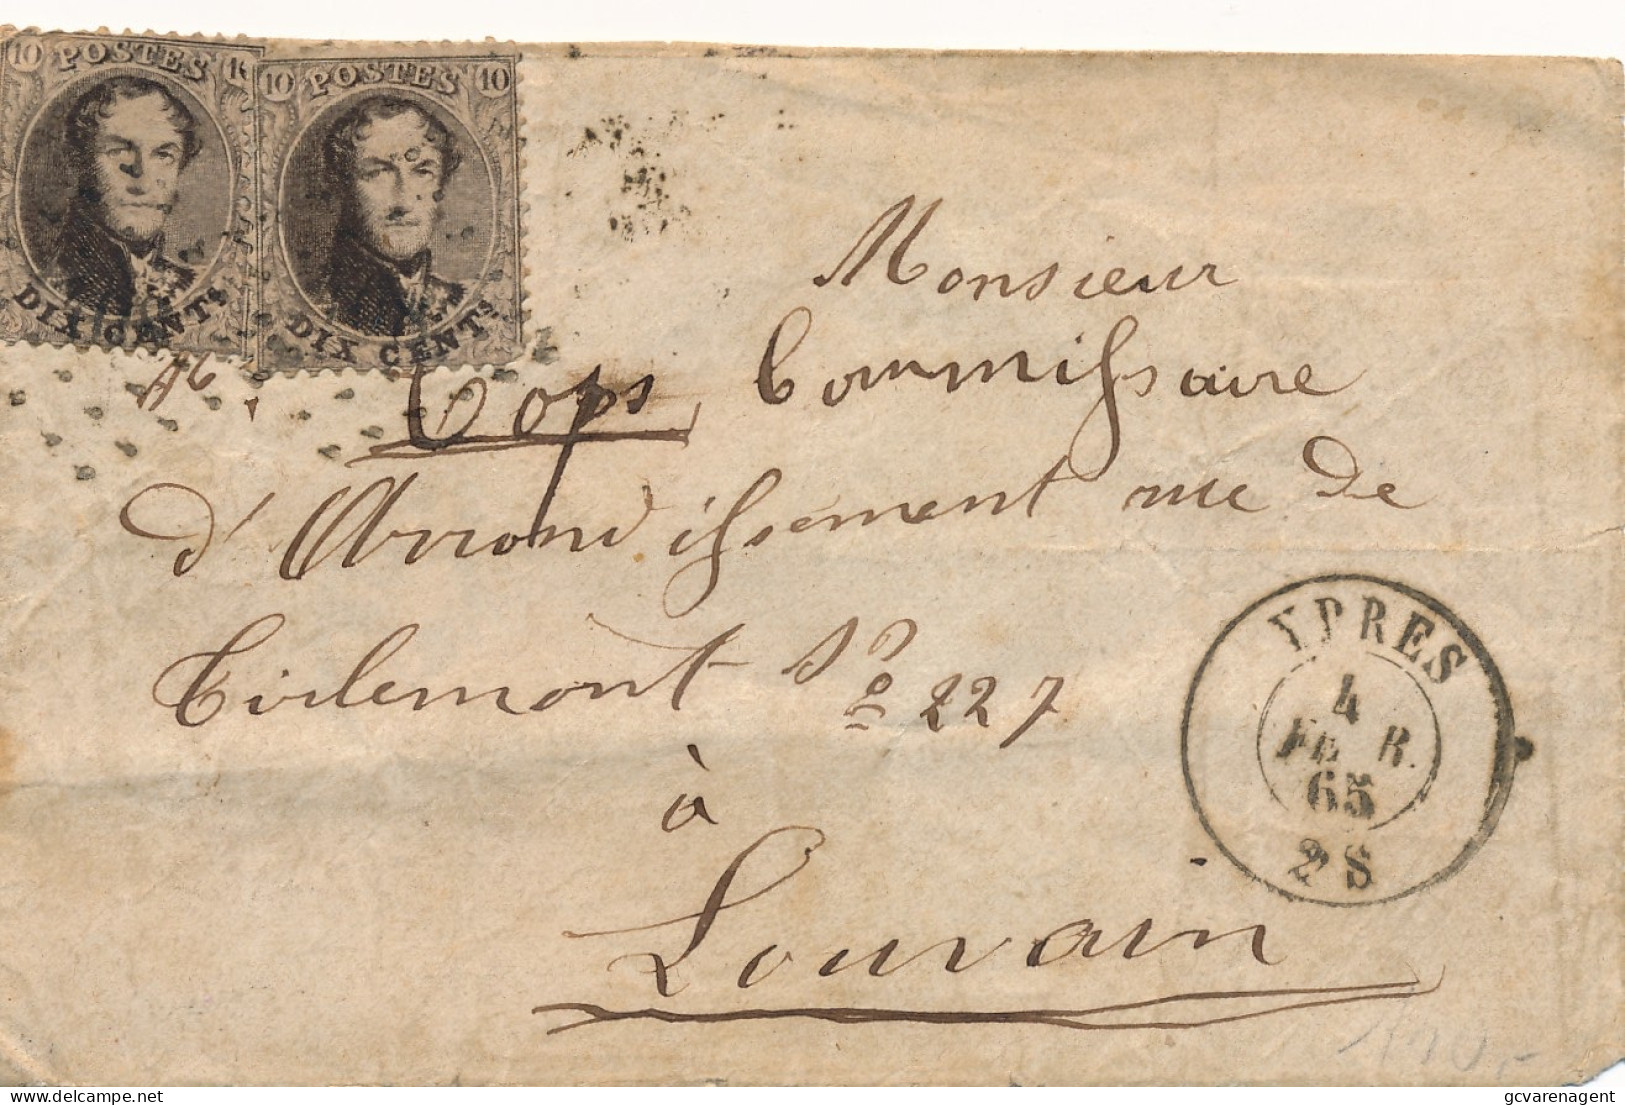 10 POSTES 10
DIX CENTS
10 POSTES 10
DIX CENTS
Monsieur
Cops, Commissaire
d'Arrondissement rue de
Tirlemont No 227
à
Louvain
YPRES
4
FEBR.
65
2 S
delcampe.net
gcvarenagent